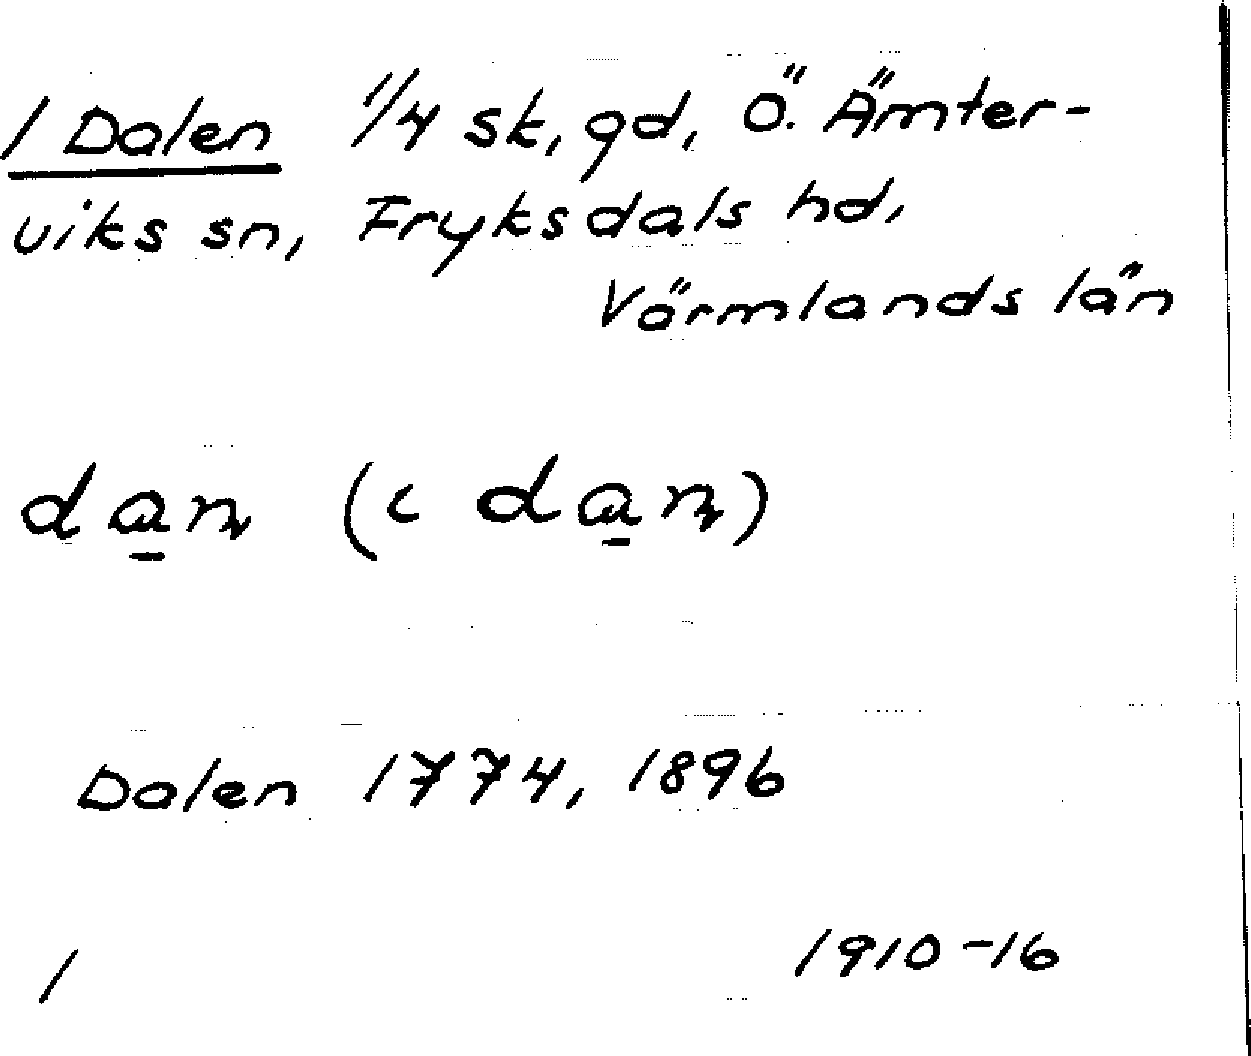 1 Dalen 1/4 sk, gd, Ö. Ämter-
viks sn, Fryksdals hd,
Värmlands län
dan (c dan)
Dalen 1774, 1896
1 1910-16